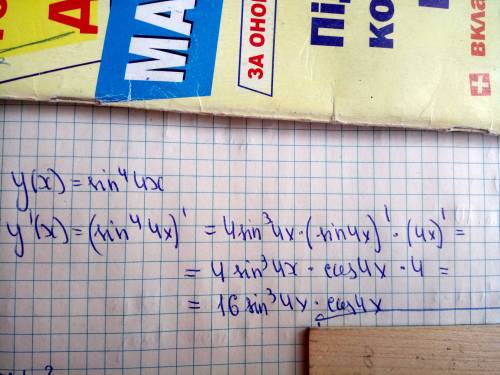 МА
ЗА ОНОВ
Пі
ко
вкла
y(x) = sin⁴ 4x
y'(x) = (sin⁴ 4x)' = 4sin³4x · (sin4x)' · (4x)' =
= 4 sin³4x · cos4x · 4 =
= 16 sin³4x · cos4x